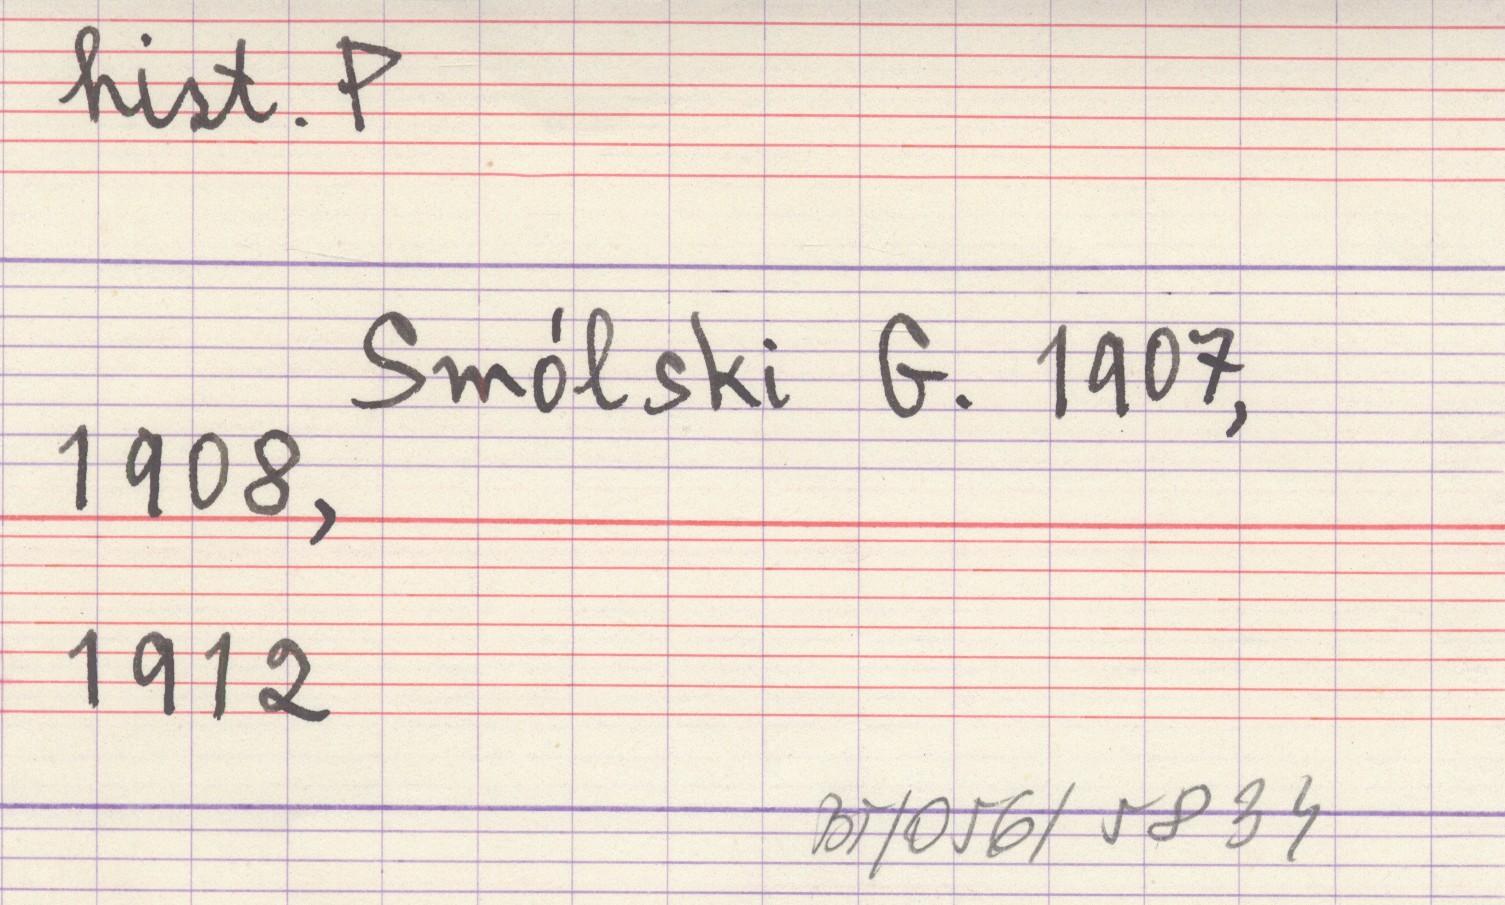 hist. P
Smólski G. 1907,
1908,
1912
/056/5834